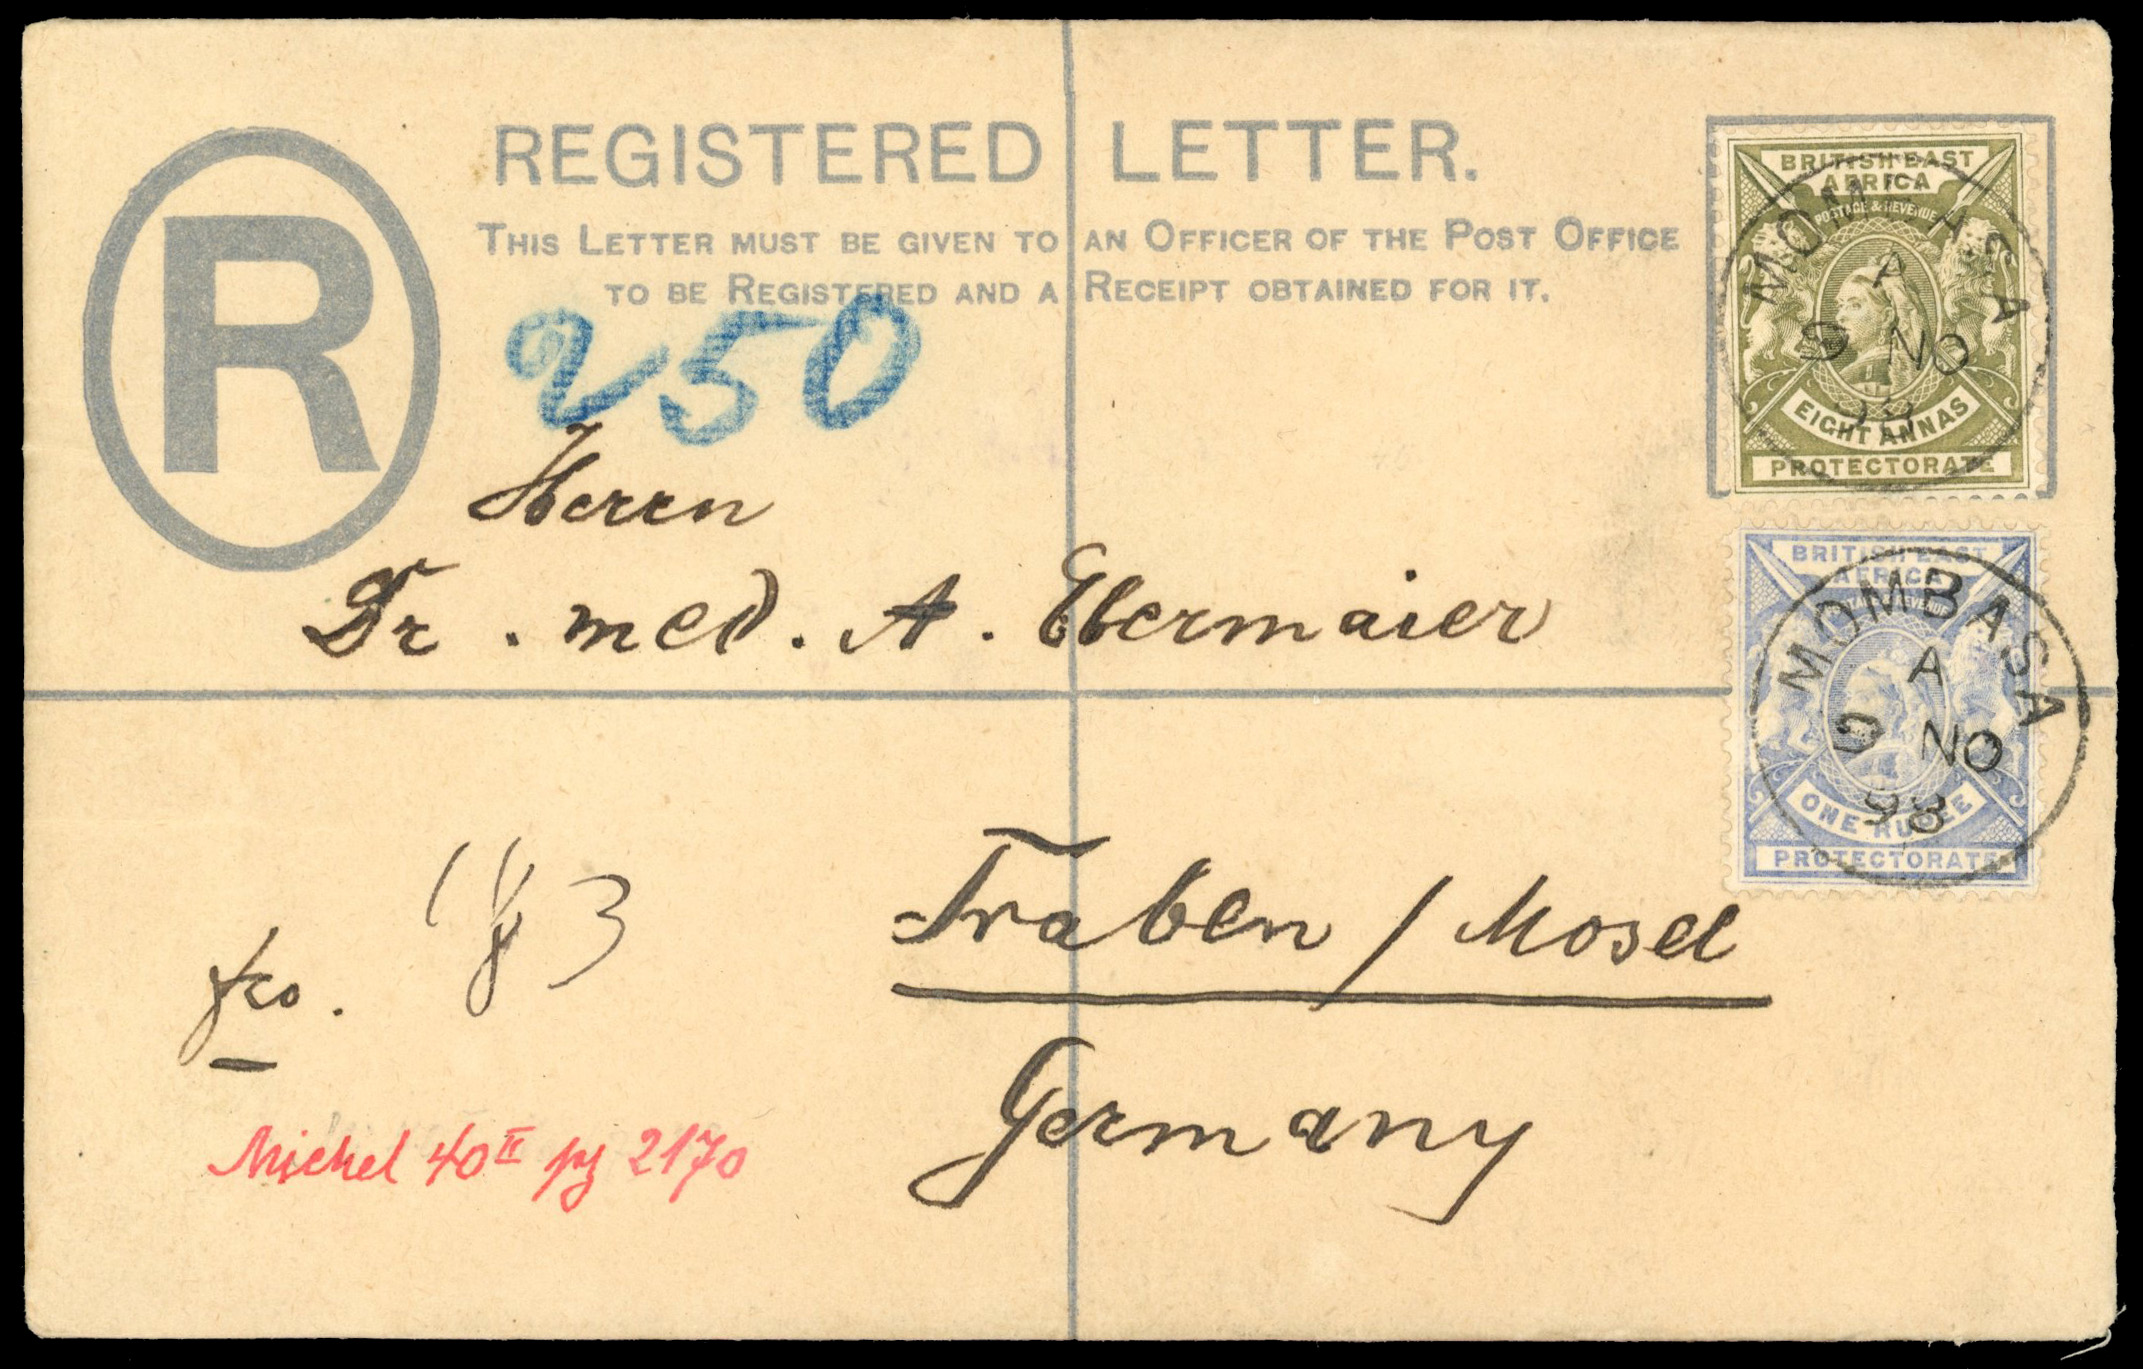 REGISTERED LETTER.
THIS LETTER MUST BE GIVEN TO AN OFFICER OF THE POST OFFICE
TO BE REGISTERED AND A RECEIPT OBTAINED FOR IT.
R
250
BRITISH EAST
AFRICA
POSTAGE & REVENUE
EIGHT ANNAS
PROTECTORATE
MOMBASA
A
9 NO
98
BRITISH EAST
AFRICA
POSTAGE & REVENUE
ONE RUPEE
PROTECTORATE
MOMBASA
A
9 NO
98
Herrn
Dr. med. A. Ebermaier
Traben / Mosel
Germany
fco.
Michel 40 II 2170